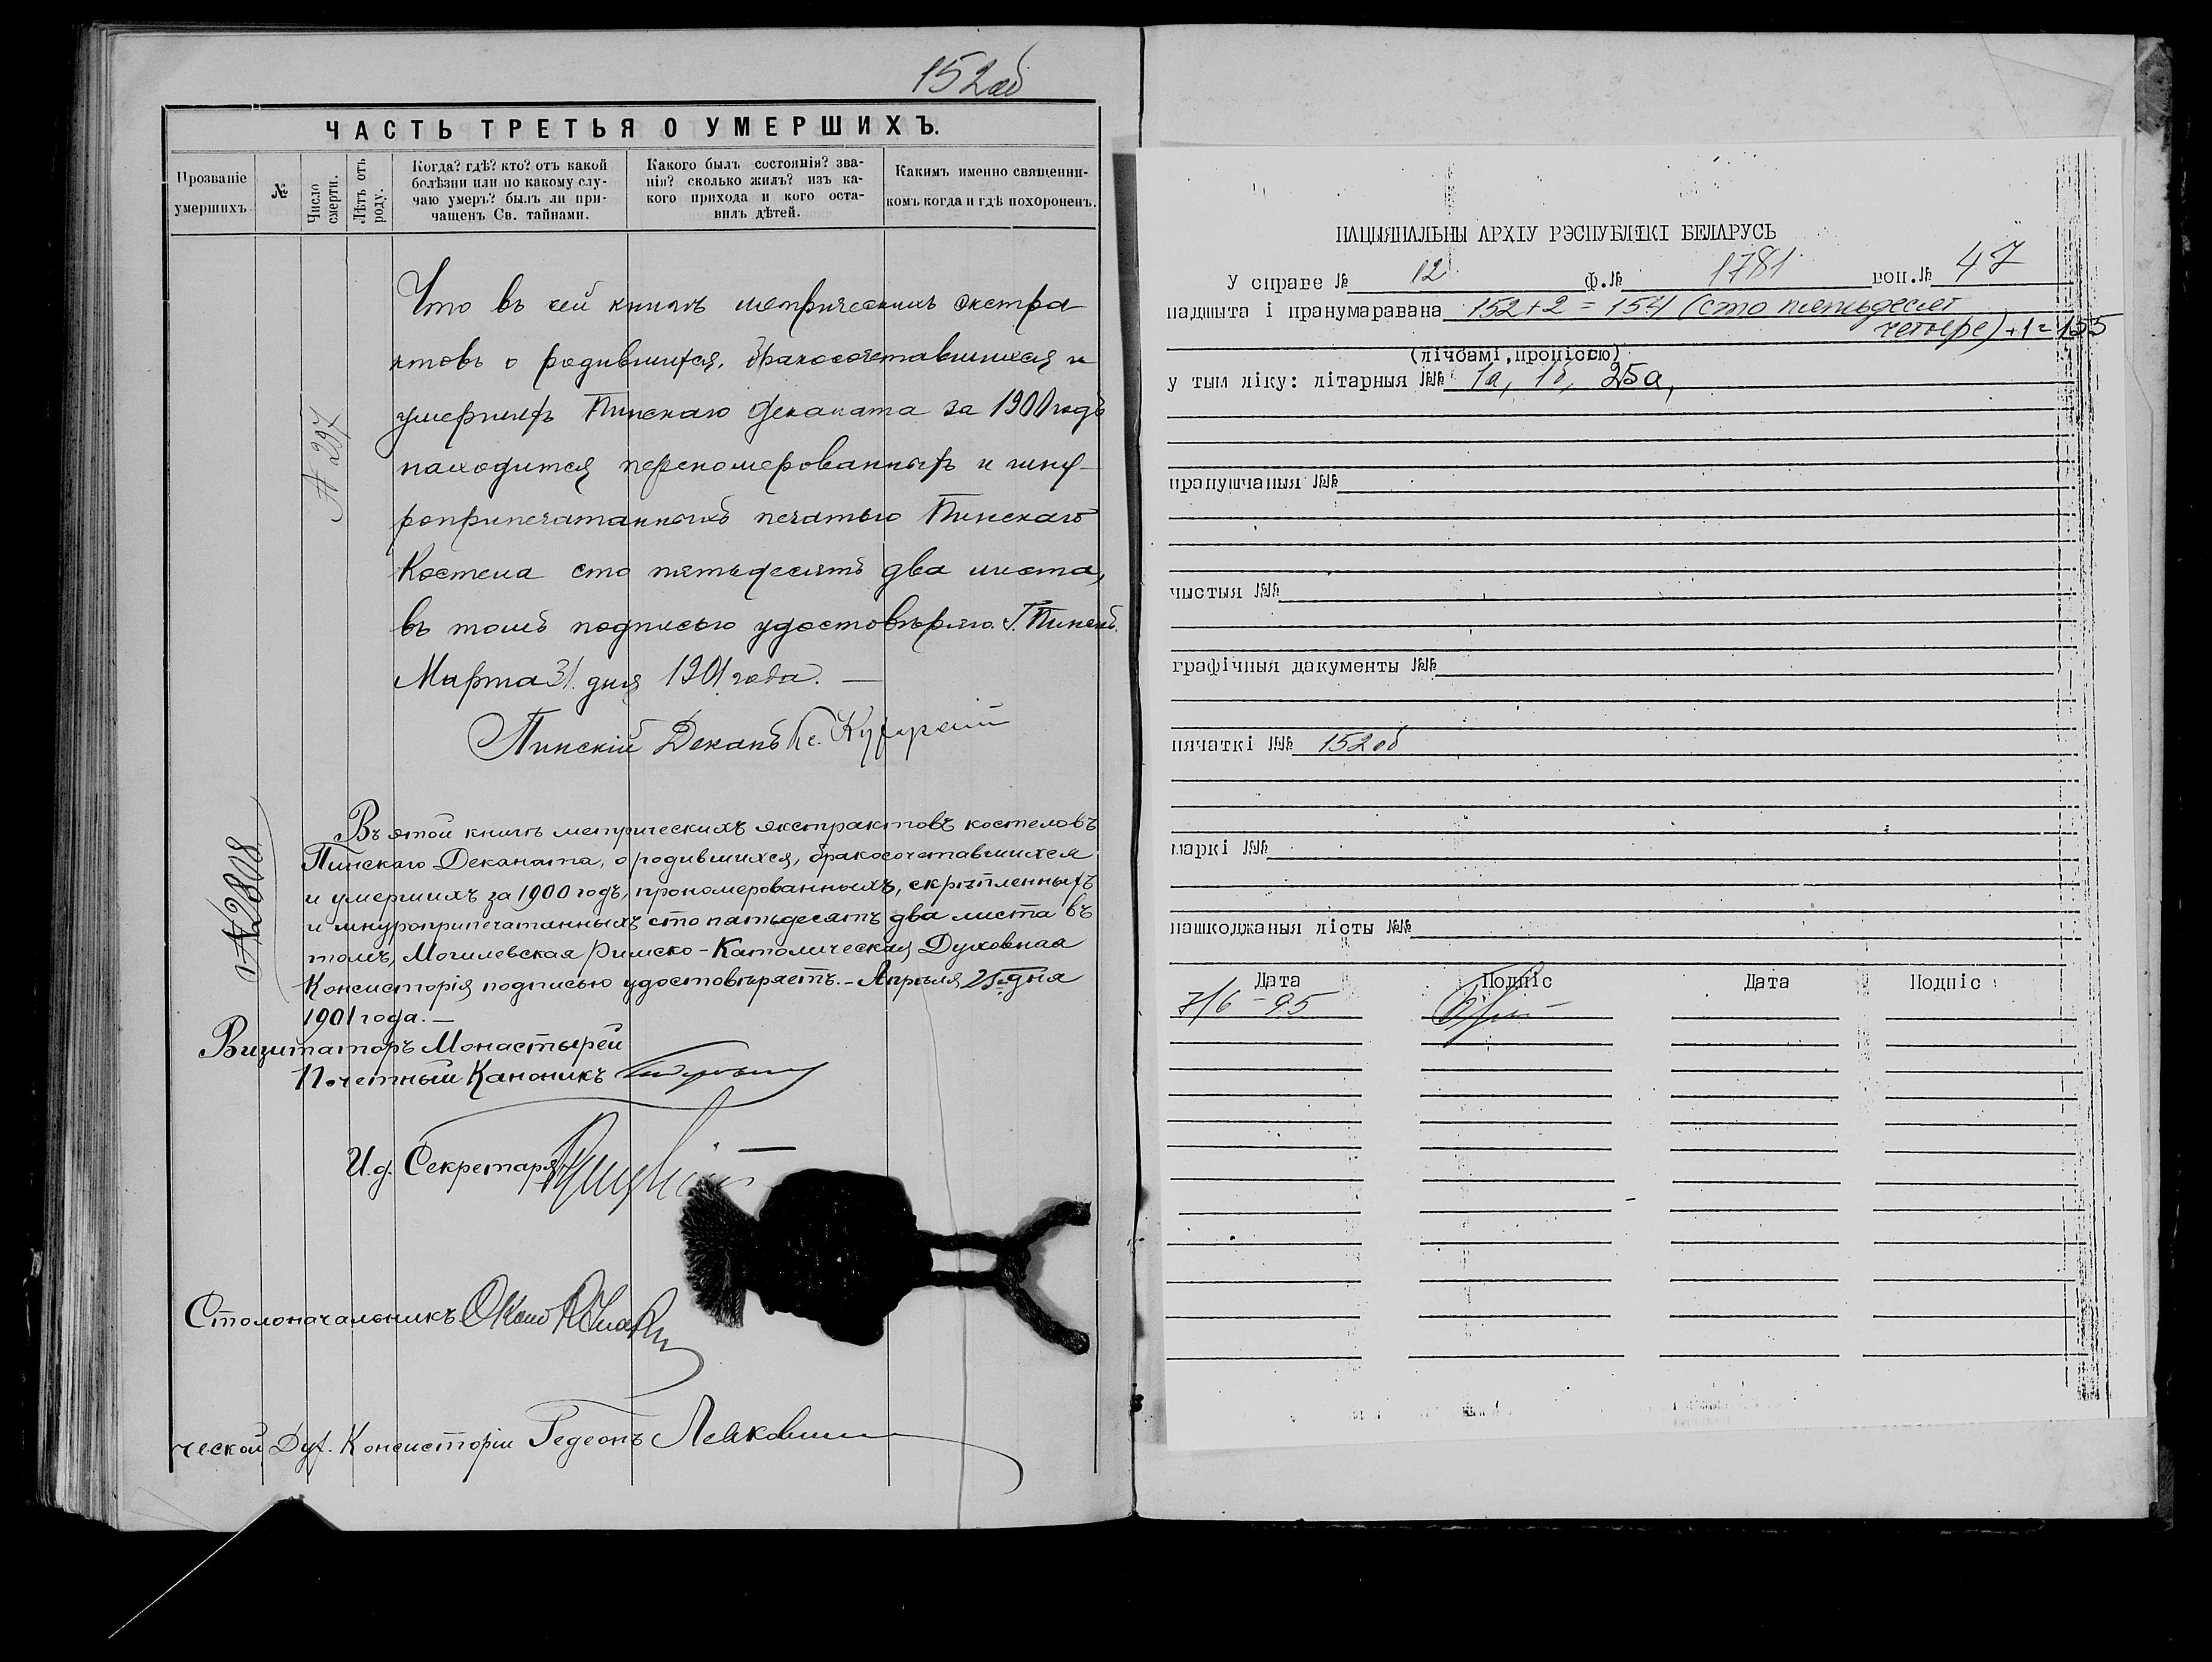 152об
ЧАСТЬ ТРЕТЬЯ О УМЕРШИХЪ.
Прозваніе умершихъ.
№
Число смерти.
Лѣтъ отъ роду.
Когда? гдѣ? кто? отъ какой
болѣзни или по какому слу-
чаю умеръ? былъ ли при-
чащенъ Св. тайнами.
Какого былъ состоянія? зва-
нія? сколько жилъ? изъ ка-
кого прихода и кого оста-
вилъ дѣтей.
Какимъ именно священни-
комъ когда и гдѣ похороненъ.
№ 297
Что въ сей книгѣ метрическихъ экстра
ктовъ о родившихся, бракосочетавшихся и
умершихъ Пинскаго Деканата за 1900 годъ
находится переномерованныхъ и шну-
роприпечатанныхъ печатью Пинскаго
Костела сто пятьдесятъ два листа,
въ томъ подписью удостовѣряю. Г. Пинскъ.
Марта 31 дня 1901 года. —
Пинскій Деканъ Кс.
№ 2808
Въ этой книгѣ метрическихъ экстрактовъ костеловъ
Пинскаго Деканата, о родившихся, бракосочетавшихся
и умершихъ за 1900 годъ, прономерованныхъ, скрѣпленныхъ
и шнуроприпечатанныхъ сто пятьдесятъ два листа въ
томъ, Могилевская Римско-Католическая Духовная
Консисторія подписью удостовѣряетъ. - Апрѣля 25 дня
1901 года. —
Визитаторъ Монастырей
Почетный Каноникъ
И.д. Секретаря
Столоначальникъ
ческой Дух. Консисторіи Гедеонъ
НАЦЫЯНАЛЬНЫ АРХІУ РЭСПУБЛІКІ БЕЛАРУСЬ
У справе № 12 ф.№ 1781 воп.№ 47
падшыта і пранумаравана 152+2=154 (сто пятьдесят
четыре) +1=155
(лічбамі, пропіссю)
у тым ліку: літарныя №№ 1а, 1б, 25а,
прапушчаныя №№
чыстыя №№
графічныя дакументы №№
пячаткі №№ 152об
маркі №№
пашкоджаныя лісты №№
Дата Подпіс Дата Подпіс
7/6-95